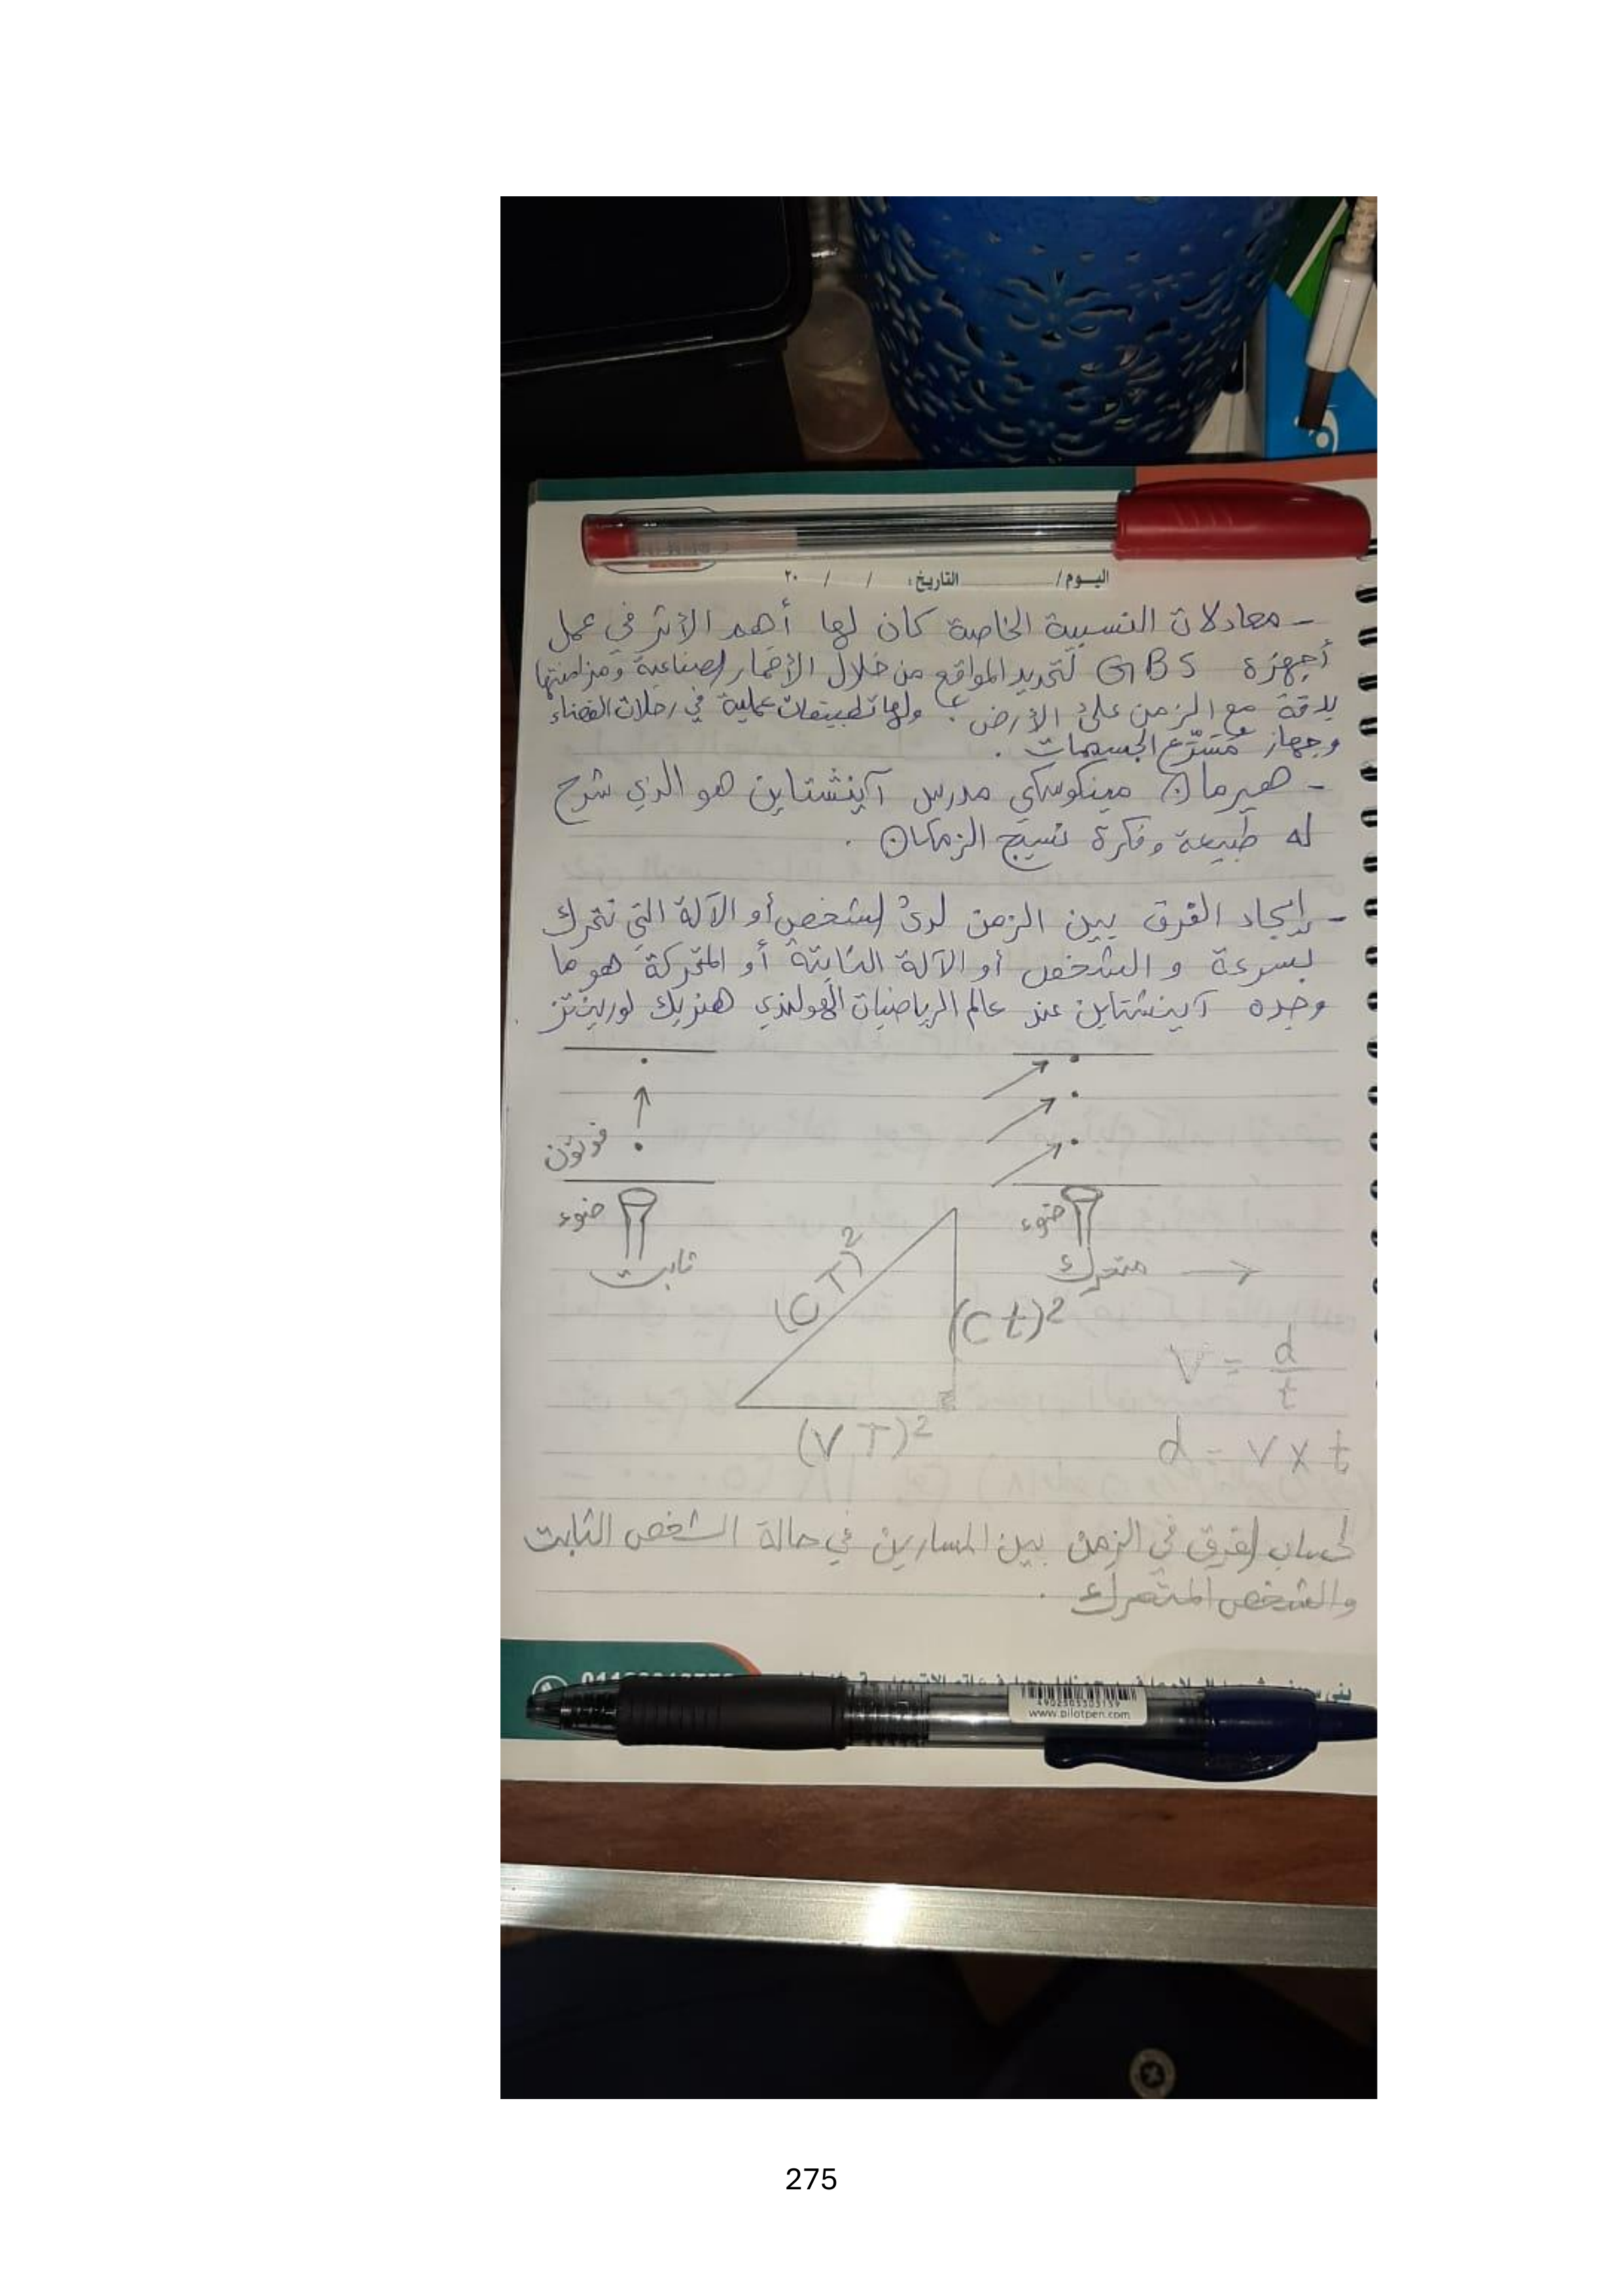 اليوم / التاريخ: / / ٢٠
- معادلات النسبية الخاصة كان لها أهم الأثر في عمل
أجهزة GBS لتحديد المواقع من خلال الأقمار الصناعية ومزامنتها
بدقة مع الزمن على الأرض، ولها تطبيقات عملية في رحلات الفضاء
وجهاز مُسَرّع الجسيمات .
- هيرمان مينكوسكي مدرس آينشتاين هو الذي شرح
له طبيعة وفكرة نسيج الزمكان .
- إيجاد الفرق بين الزمن لدى الشخص أو الآلة التي تتحرك
بسرعة و الشخص أو الآلة الثابتة أو المتحركة هو ما
وجده آينشتاين عند عالم الرياضيات الهولندي هنريك لورينتز .
فوتون
ضوء
ثابت
ضوء
متحرك
(C T)²
(C t)²
(V T)²
V = d/t
d = V x t
لحساب الفرق في الزمن بين المسارين في حالة الشخص الثابت
والشخص المتحرك .
4902505303159
www.pilotpen.com
275